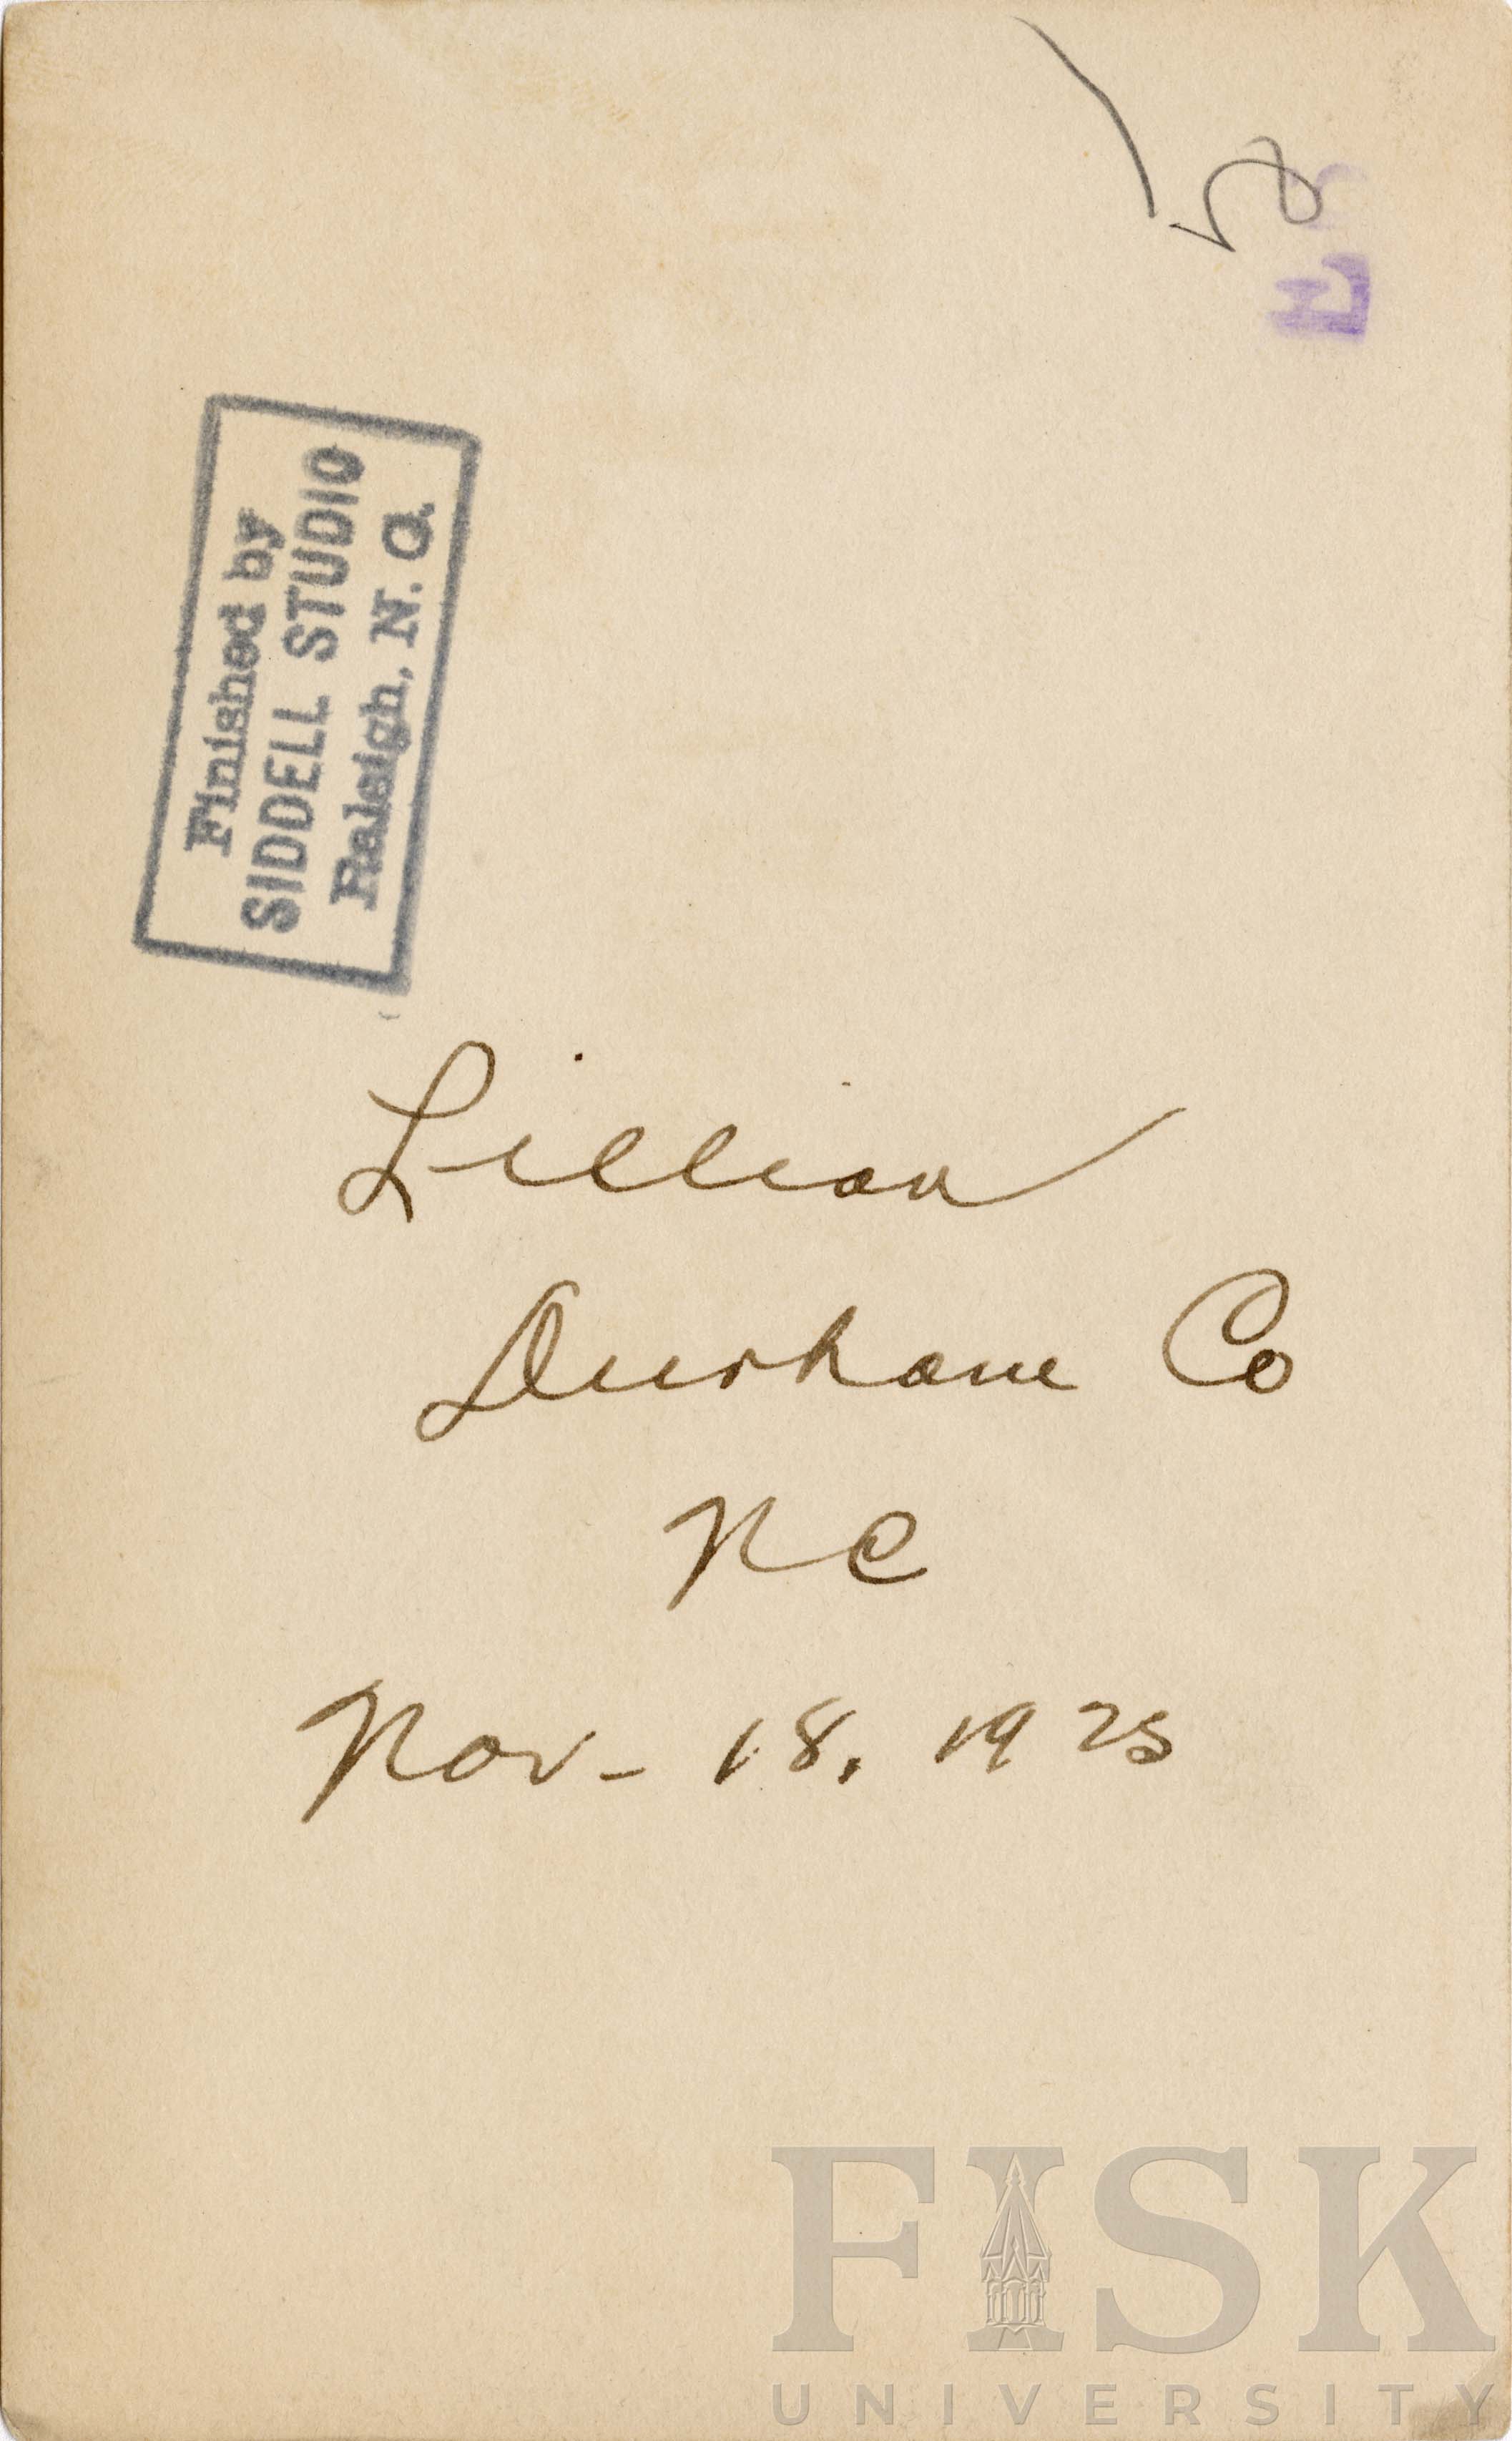 Finished by
SIDDELL STUDIO
Raleigh, N. C.
Lillian
Durham Co
NC
Nov- 18, 1925
FISK
UNIVERSITY